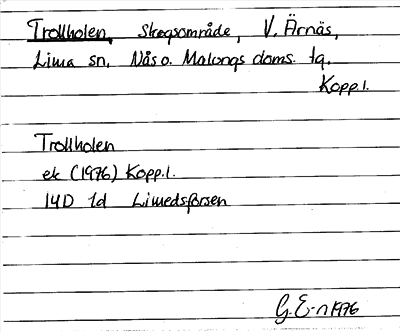 Trollholen, Skogsområde, V. Ärnäs,
Lima sn, Nås o. Malungs doms. tg.
Kopp.l.
Trollholen
ek (1976) Kopp.l.
14D 1d Limedsforsen
G. E-n 1976